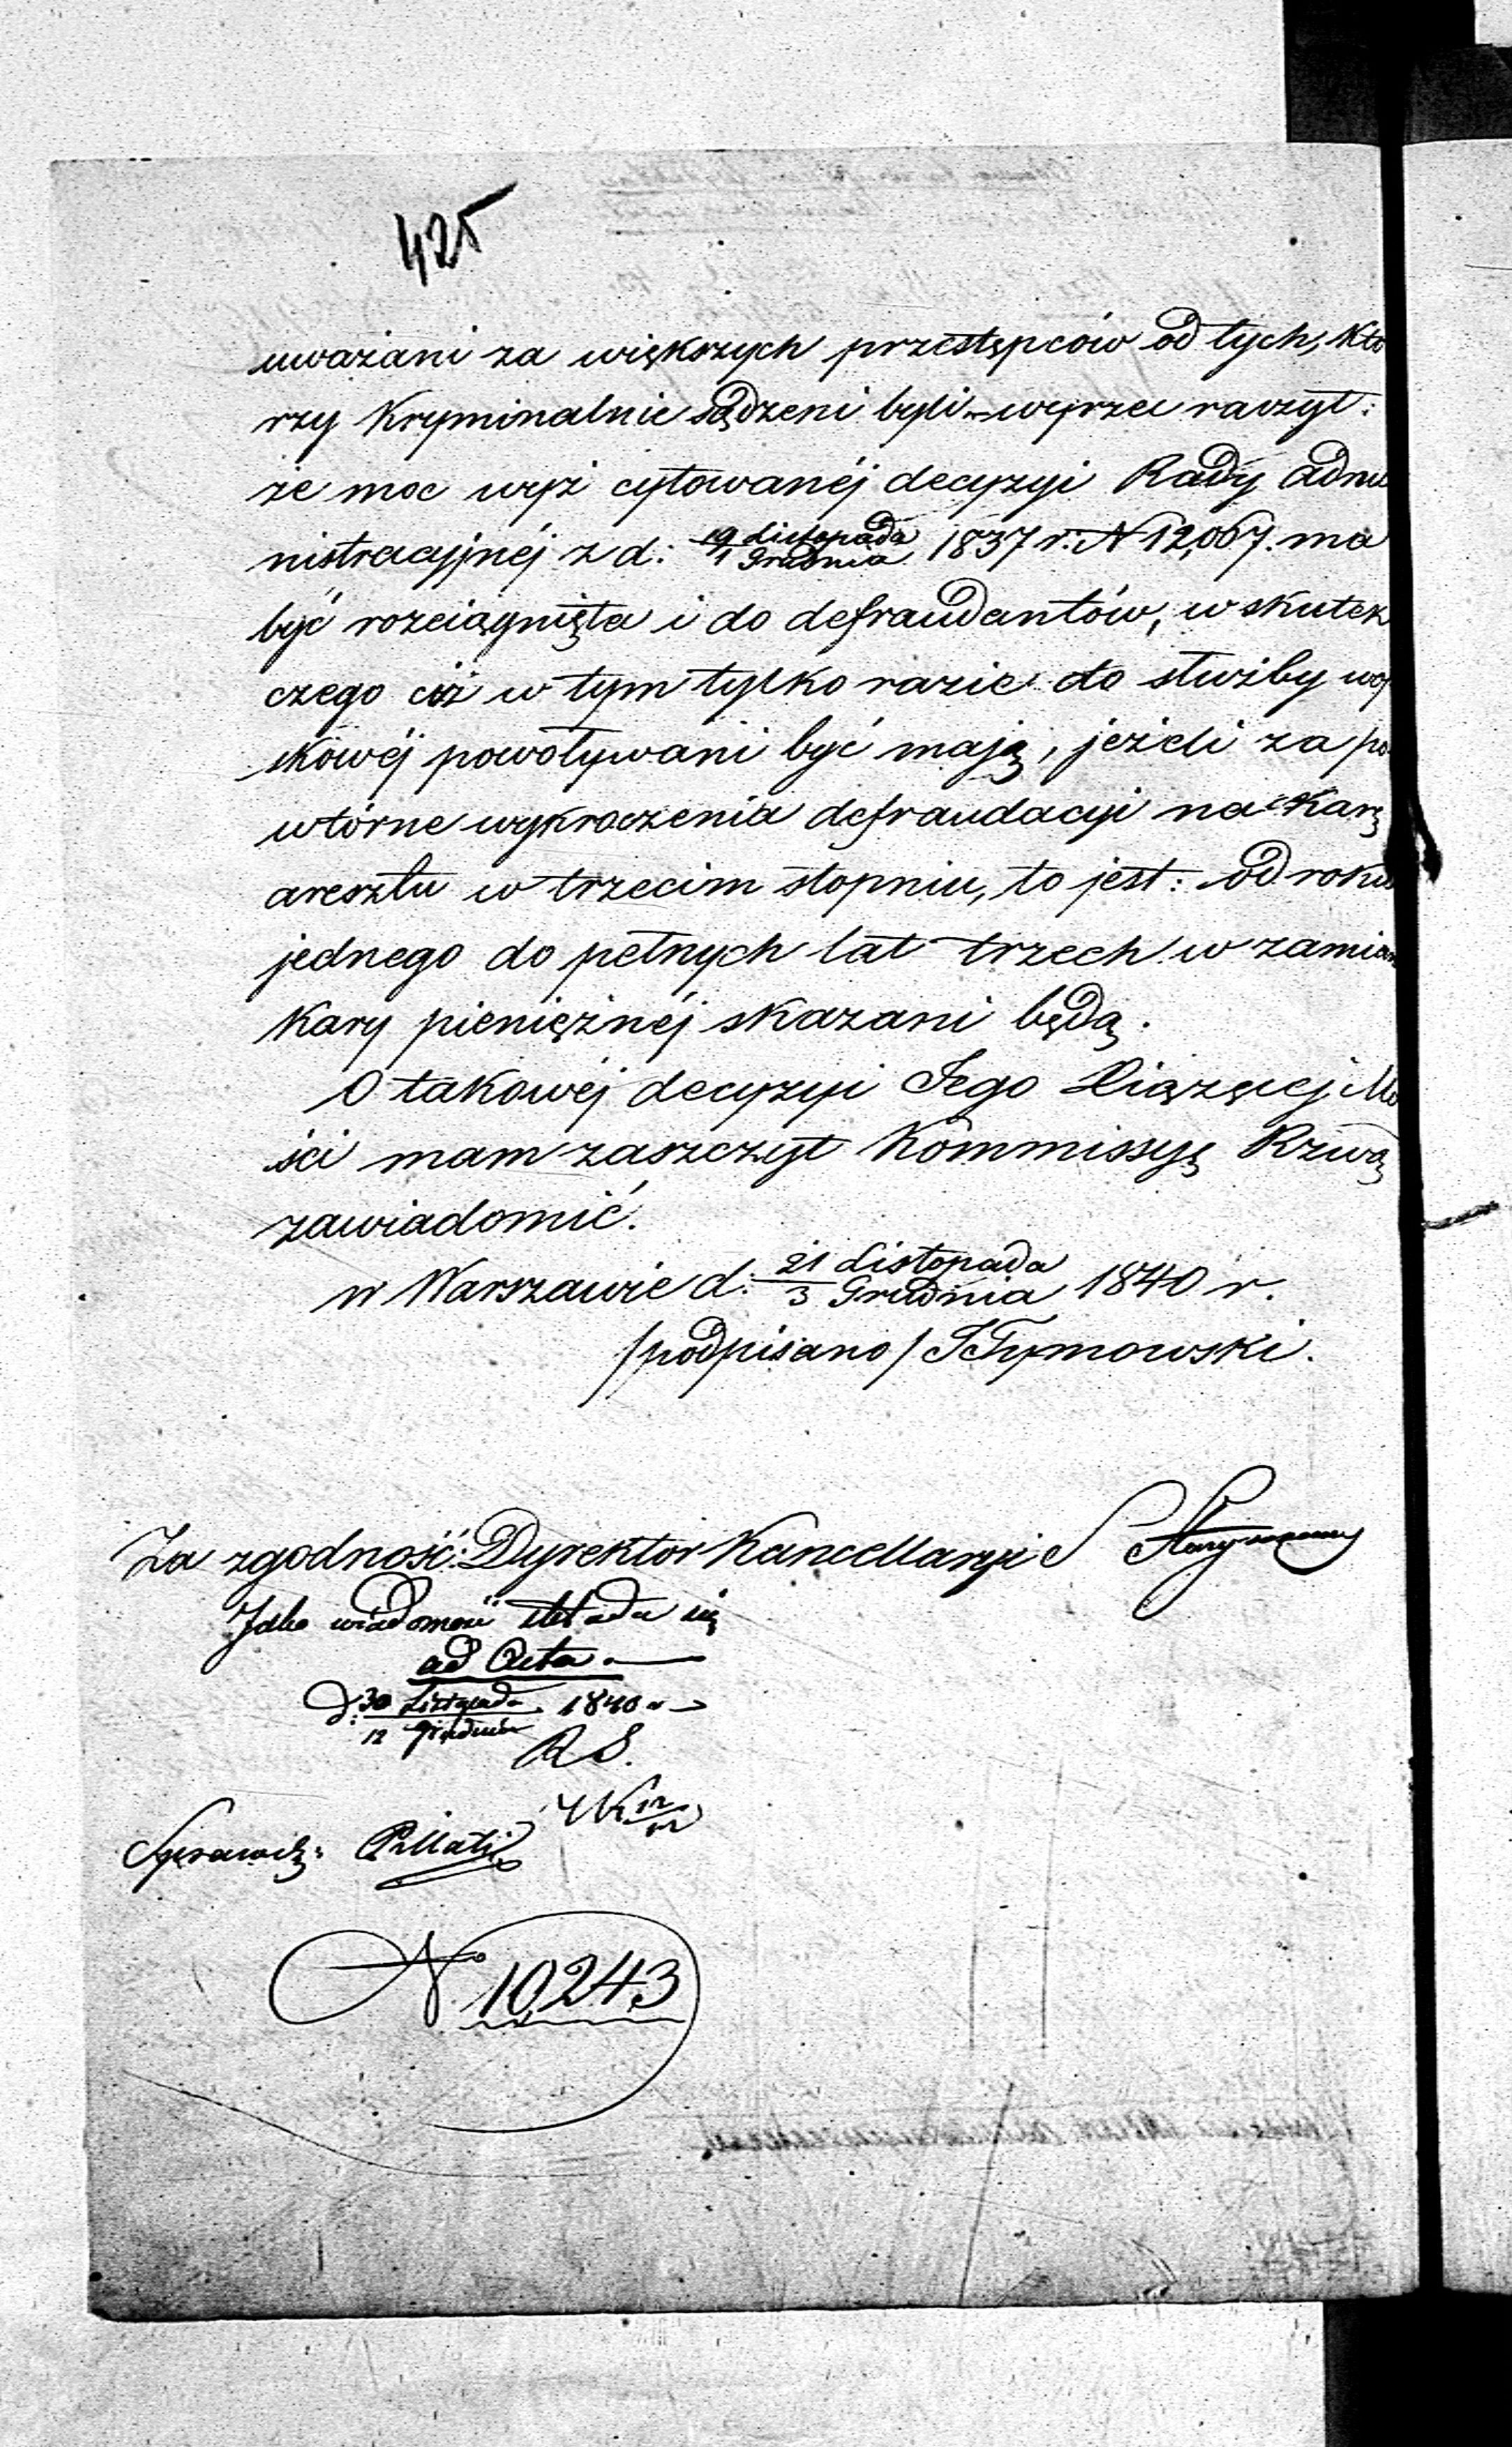 425
uważani za większych przestępców od tych, kto
rzy kryminalnie sądzeni byli – wyrzec raczył:
że moc wyż cytowanéj decyzyi Rady admi
nistracyjnéj z d: 19 Listopada / 1 Grudnia 1837 r. N 12,067. ma
być rozciągnięta i do defraudantów, w skutek
czego ciż w tym tylko razie do służby woj
skowéj powoływani być mają, jeżeli za po
wtórne wykroczenia defraudacyi na karę
aresztu w trzecim stopniu, to jest: od roku
jednego do pełnych lat trzech w zamian
kary pieniężnéj skazani będą.
O takowéj decyzyi Jego Xiążęcej Mo
ści mam zaszczyt Kommissyę Rzwą
zawiadomić.
w Warszawie d: 21 Listopada / 3 Grudnia 1840 r.
/podpisano/ J Tymowski.
Za zgodność: Dyrektor Kancellaryi
Jako wiadomość składa się
ad Acta. —
D: 30 Listopada / 12 Grudnia 1840 r
R S.
12/12
N 10,243